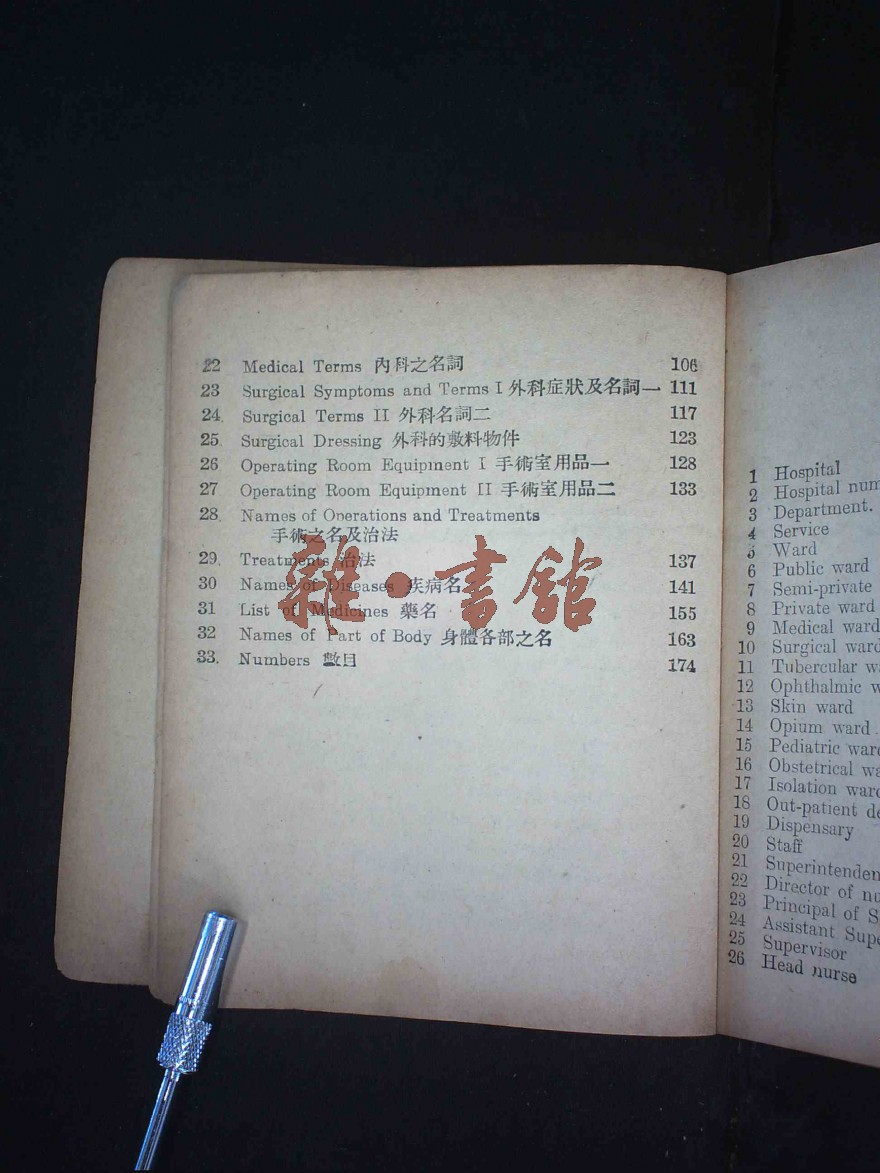 22 Medical Terms 內科之名詞 106
23 Surgical Symptoms and Terms I 外科症狀及名詞一 111
24. Surgical Terms II 外科名詞二 117
25. Surgical Dressing 外科的敷料物件 123
26. Operating Room Equipment I 手術室用品一 128
27 Operating Room Equipment II 手術室用品二 133
28. Names of Operations and Treatments
手術之名及治法
29. Treatments 治法 137
30 Names of Diseases 疾病名 141
31 List of Medicines 藥名 155
32 Names of Part of Body 身體各部之名 163
33. Numbers 數目 174
雜·書館
1 Hospital
2 Hospital num
3 Department.
4 Service
5 Ward
6 Public ward
7 Semi-private
8 Private ward
9 Medical ward
10 Surgical ward
11 Tubercular wa
12 Ophthalmic w
13 Skin ward
14 Opium ward.
15 Pediatric ward
16 Obstetrical wa
17 Isolation ward
18 Out-patient de
19 Dispensary
20 Staff
21 Superintenden
22 Director of nu
23 Principal of S
24 Assistant Supe
25 Supervisor
26 Head nurse